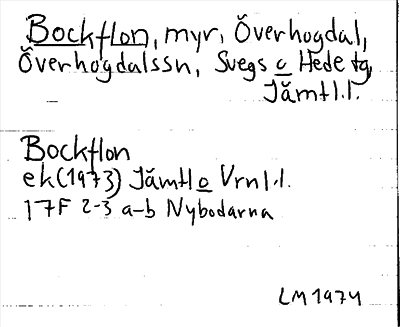 Bockflon, myr, Överhogdal,
Överhogdalssn, Svegs o Hede tg,
Jämtl.l.
Bockflon
ek(1973) Jämtl o Vrnl.l.
17F 2-3 a-b Nybodarna
LM 1974